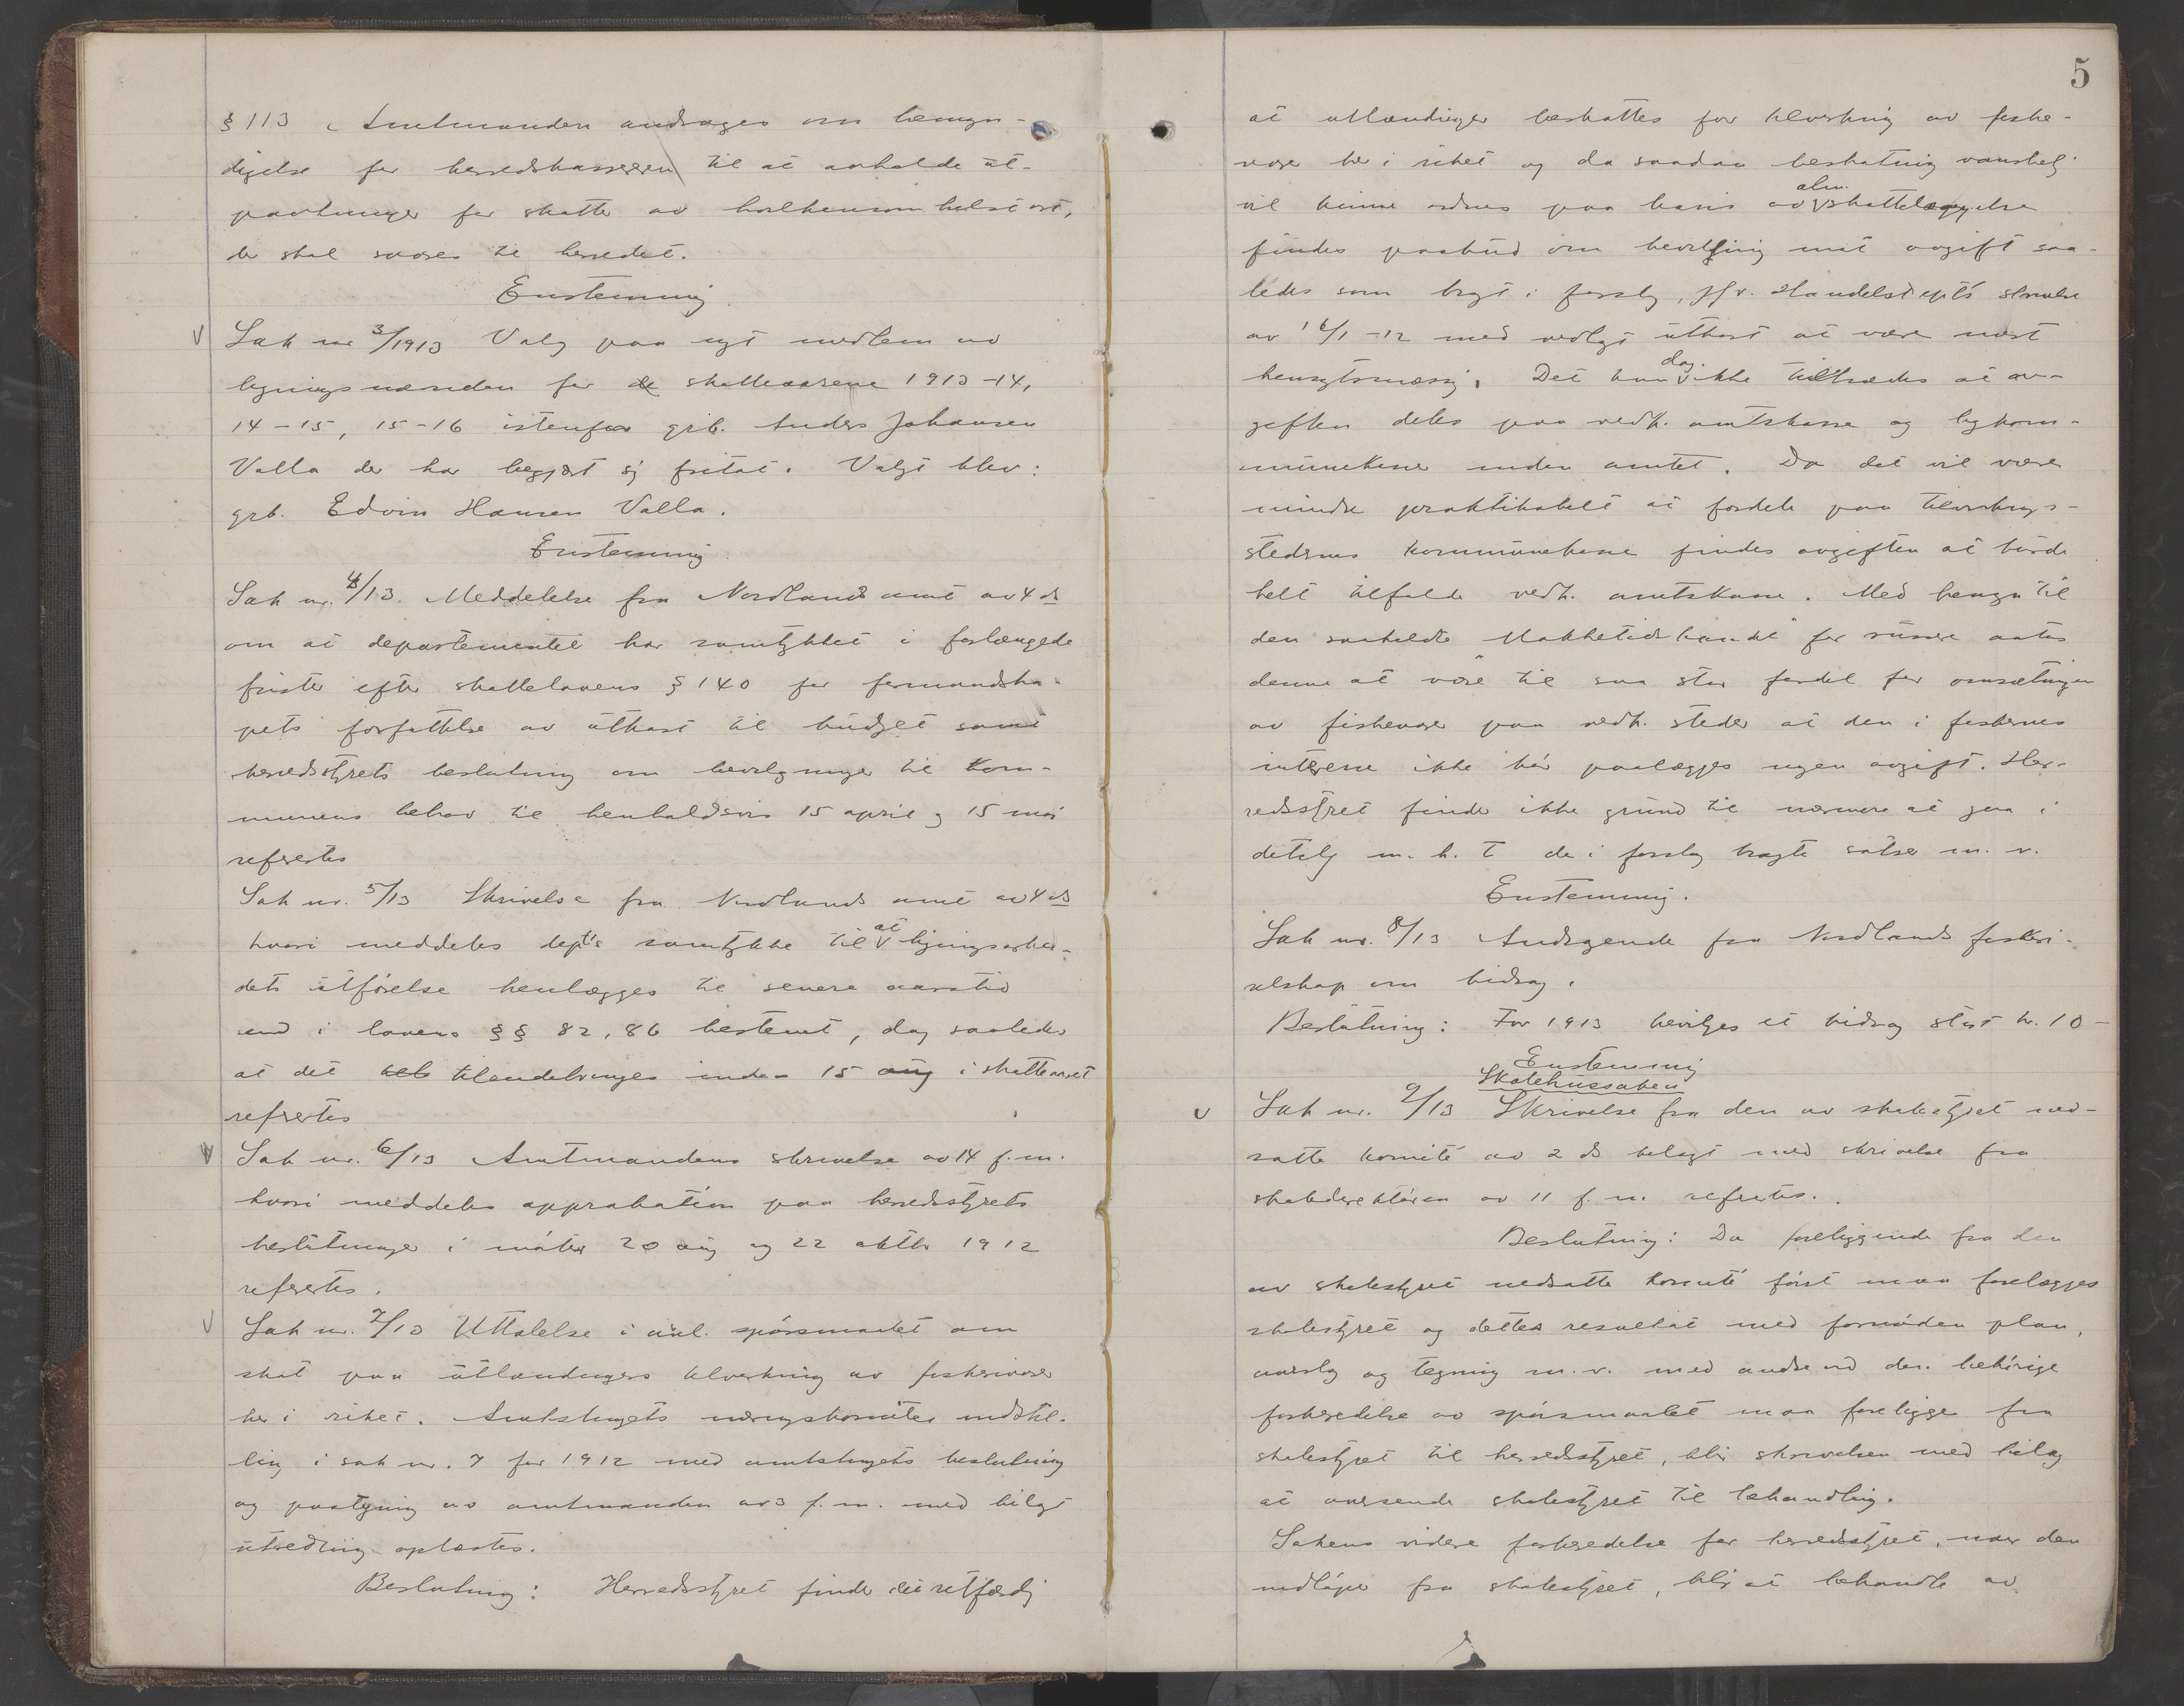 § 113. Amtmanden andrages om bemyn-
digelse for herredskassereren til at avholde ut-
pantninger for skatter av hvilkensomhelst art,
der skal svares til herredet.
Enstemmig.
Sak nr 3/1913 Valg paa nyt medlem av
ligningsnævnden for de skatteaarene 1913-14,
14-15, 15-16 istenfor grb. Anders Johansen
Valla der har begjært sig fritat. Valgt blev:
grb. Edvin Hansen Valla.
Enstemmig.
Sak nr. 4/13. Meddelelse fra Nordlands amt av 4 ds
om at departementet har samtykket i forlængede
frister efter skattelovens § 140 for formandska-
pets forfattelse av utkast til budget samt
herredsstyrets beslutning om bevilgninger til kom-
munens behov til henholdsvis 15 april og 15 mai
refertes
Sak nr. 5/13 Skrivelse fra Nordlands amt av 4 ds
hvori meddeles dept's samtykke til at ligningsarbei-
dets utførelse henlægges til senere aarstid
end i lovens §§ 82, 86 bestemt, dog saaledes
at det tilendebringes inden 15 aug i skatteaaret
refertes
Sak nr. 6/13 Amtmandens skrivelse av 14 f.m.
hvori meddeles approbation paa herredsstyrets
beslutninger i møter 20 aug og 22 oktbr 1912
refertes.
Sak nr. 7/13 Uttalelse i anl. spørsmaalet om
skat paa utlændingers tilvirkning av fiskerivarer
her i riket. Amtstingets næringskomites indstil-
ling i sak nr. 7 for 1912 med amtstingets beslutning
og paategning av amtmanden av 3 f.m. med bilagt
utredning oplæstes.
Beslutning: Herredsstyret finder det retfærdig
5
at utlændinger beskattes for tilvirkning av fiske-
varer her i riket og da saadan beskatning vanskelig
vil kunne ordnes paa basis av alm. skattelæggelse
findes paabud om bevilling mot avgift saa-
ledes som bragt i forslag, jfr. Handelsdepts skrivelse
av 16/1-12 med vedlagt utkast at være mest
hensigtsmæssig. Det kan dog ikke tiltrædes at av-
giften deles paa vedk. amtskasse og bykom-
munekasser inden amtet. Da det vil være
mindre praktikabelt at fordele paa tilvirknings-
stedernes kommunekasser findes avgiften at burde
helt tilfalde vedk. amtskasse. Med hensyn til
den saakaldte "Makketidshandel" for russere antas
denne at være til saa stor fordel for omsætningen
av fiskevarer paa vedk. steder at den i fiskernes
interesse ikke bør paalægges nogen avgift. Her-
redsstyret finder ikke grund til nærmere at gaa i
detalj m. h. t. de i forslag bragte satser m. v.
Enstemmig.
Sak nr. 8/13 Andragende fra Nordlands fiskeri-
selskap om bidrag.
Beslutning: For 1913 bevilges et bidrag stort kr. 10-
Enstemmig
Skolehussaken
Sak nr. 9/13 Skrivelse fra den av skolestyret ned-
satte komité av 2 ds bilagt med skrivelse fra
skoledirektøren av 11 f. m. refertes.
Beslutning: Da foreliggende fra den
av skolestyret nedsatte komité først maa forelægges
skolestyret og dettes resultat med fornøden plan,
overslag og tegning m. v. med andre ord den behørige
forberedelse av spørsmaalet maa foreligge fra
skolestyret til herredsstyret, blir skrivelsen med bilag
at oversende skolestyret til behandling.
Sakens videre forberedelse for herredsstyret, naar den
indløper fra skolestyret, blir at behandle av